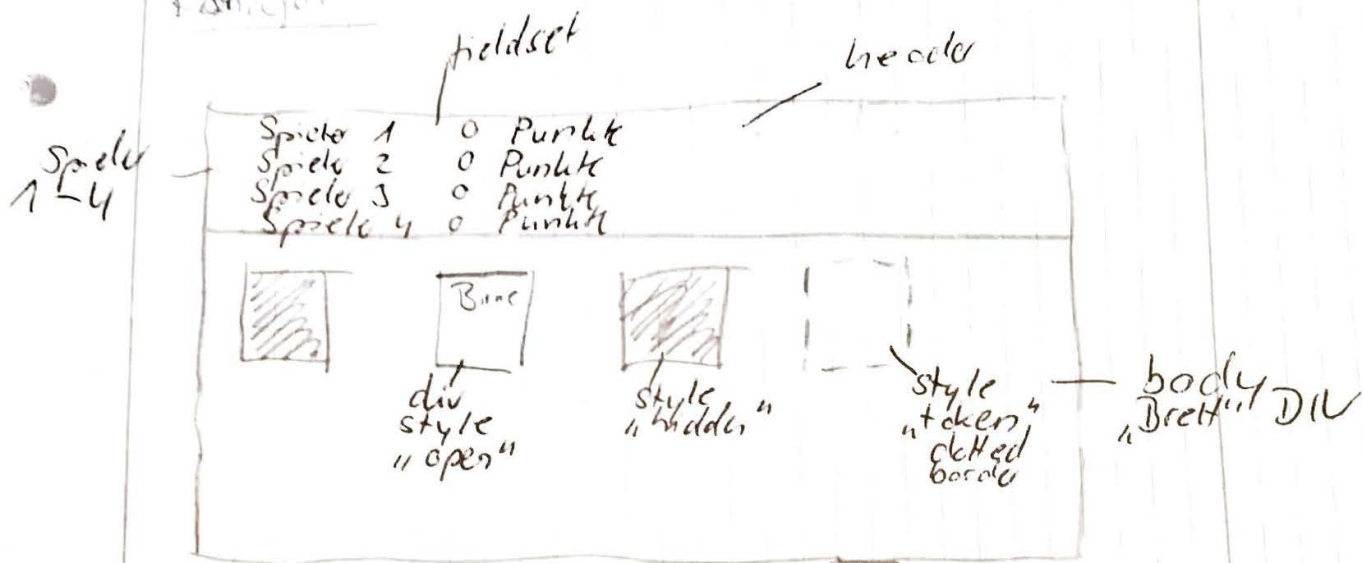 fieldset
header
Spieler 1 0 Punkte
Spieler 2 0 Punkte
Spieler 3 0 Punkte
Spieler 4 0 Punkte
Spieler
1-4
Birne
div
style
„open"
style
„hidden"
style
„taken"
dotted
border
body
„Brett" DIV